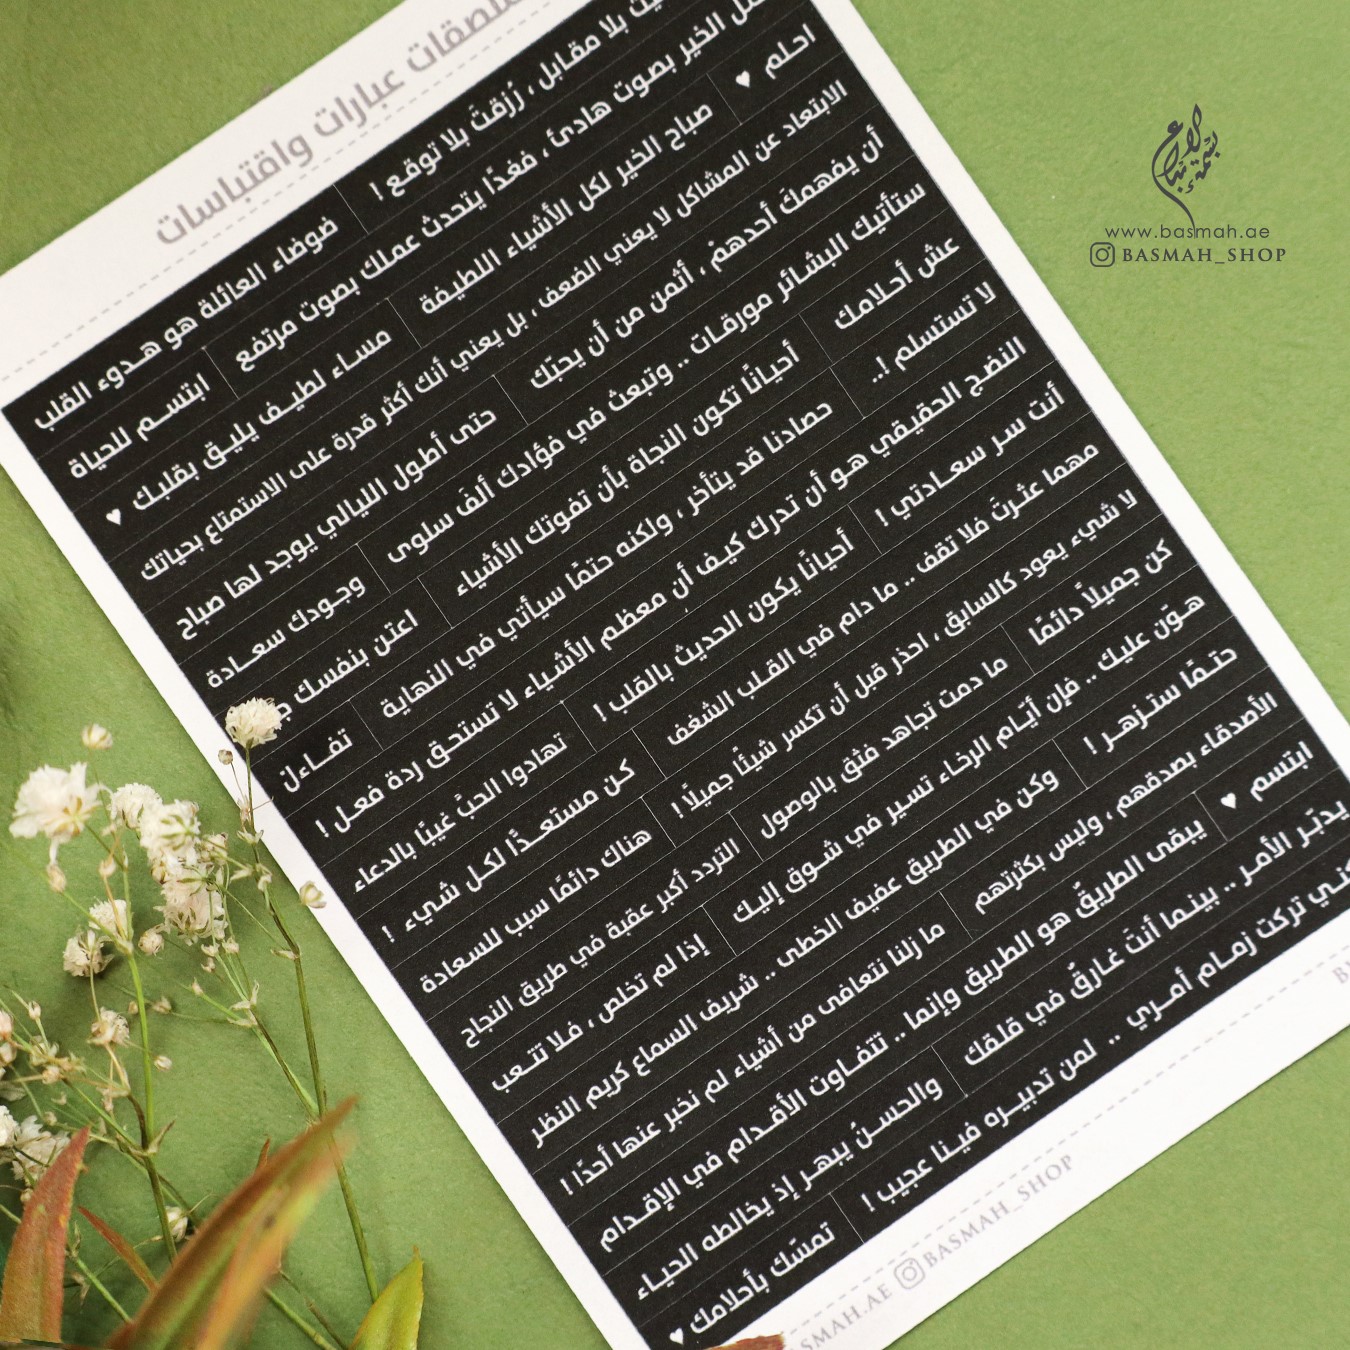 ملصقات عبارات واقتباسات
بلا مقابل ، رُزقتَ بلا توقع !
ضوضاء العائلة هو هـدوء القلب
الخير بصوت هادئ ، فغدًا يتحدث عملك بصوت مرتفع
ابتسـم للحياة
احلم ♥
صباح الخير لكل الأشياء اللطيفة
مساء لطيف يليق بقلبك ♥
الابتعاد عن المشاكل لا يعني الضعف ، بل يعني أنك أكثر قدرة على الاستمتاع بحياتك
أن يفهمكَ أحدهمْ ، أثمن من أن يحبّك
حتى أطول الليالي يوجد لها صباح
ستأتيك البشائر مورقات .. وتبعث في فؤادك ألفَ سلوى
وجودك سعـادة
عش أحلامك
أحيانًا تكون النجاة بأن تفوتك الأشياء
اعتن بنفسك
لا تستسلم !..
حصادنا قد يتأخر ، ولكنه حتمًا سيأتي في النهاية
تفـاءلْ
النضج الحقيقي هو أن تدرك كيف أن معظم الأشياء لا تستحق ردة فعل !
أنت سر سعـادتي !
أحيانًا يكون الحديث بالقلب !
تهادوا الحبَّ غيبًا بالدعاء
مهما عثرتَ فلا تقف .. ما دام في القلب الشغف
كن مستعـدًّا لكل شيء !
لا شيء يعود كالسابق ، احذر قبل أن تكسر شيئًا جميلًا !
هناك دائمًا سبب للسعادة
كن جميلاً دائمًا
ما دمت تجاهد فثق بالوصول
التردد أكبر عقبة في طريق النجاح
هوّن عليك .. فإن أيّام الرخاء تسير في شوق إليك
إذا لم تخلص ، فلا تتعب
حتـمًا ستـزهـر !
وكن في الطريق عفيف الخطى .. شريف السماع كريم النظر
الأصدقاء بصدقهم ، وليس بكثرتهم
ما زلنا نتعافى من أشياء لم نخبر عنها أحدًا !
ابتسم ♥
يبقى الطريقُ هو الطريق وإنما .. تتفـاوت الأقـدام في الإقـدام
يدبّر الأمـر .. بينـما أنتَ غارقٌ في قلقك
والحسنُ يبهـر إذ يخالطه الحيـاء
تركت زمـام أمـري .. لمن تدبيـره فينا عجيب !
تمسّك بأحلامك ♥
BASMAH_SHOP
بسمة إبداع
www.basmah.ae
BASMAH_SHOP